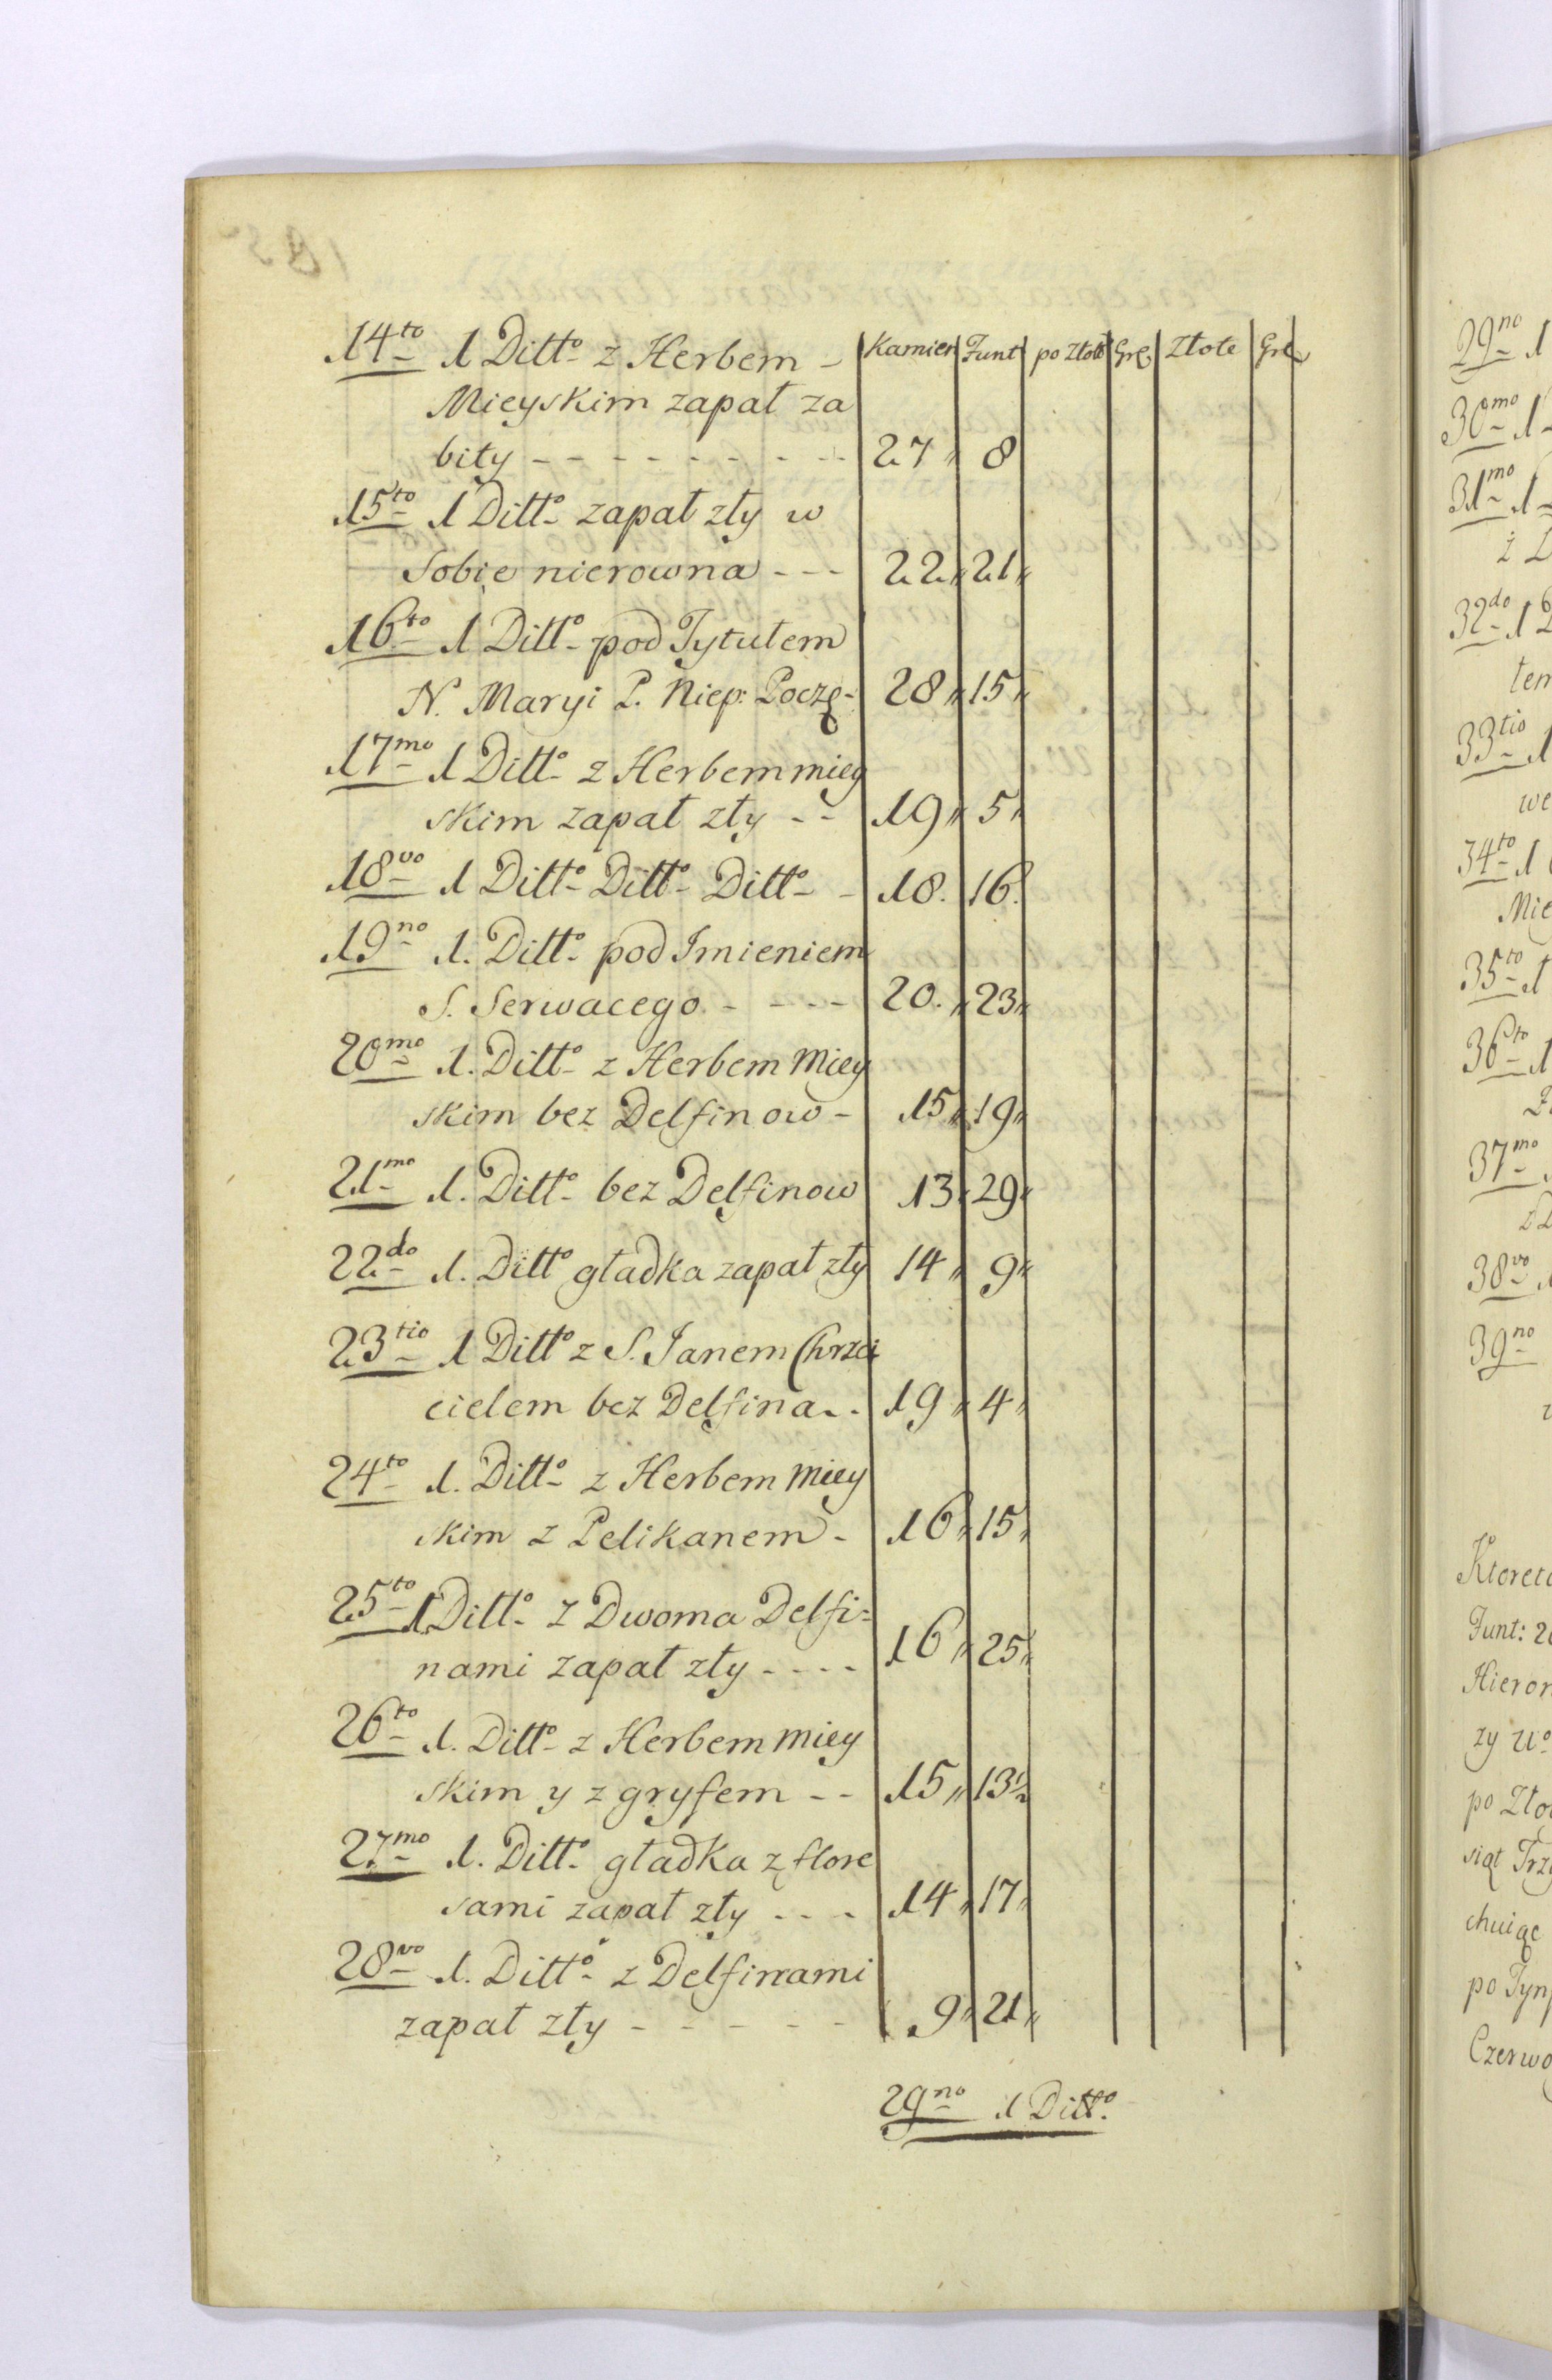 14to 1 Ditto z Herbem - Kamien Funt po Złote Gre Złote Gre
Mieyskim zapał za
bity - - - - - - - - - 27 „ 8
15to 1 Ditto zapał zły w
Sobie nierowna - - - 22 „ 21 „
16to 1 Ditto pod Tytułem
N. Maryi P. Niep: Poczę- 28 „ 15 „
17mo 1 Ditto z Herbem miey
skim zapał zły - - 19 „ 5 „
18vo 1 Ditto Ditto Ditto - 18. 16.
19no 1. Ditto pod Imieniem
S. Serwacego. - - - - 20. „ 23 „
20mo 1. Ditto z Herbem Miey
skim bez Delfinow - 15 „ 19 „
21mo 1. Ditto bez Delfinow 13 „ 29 „
22do 1. Ditto gładka zapał zły 14 „ 9 „
23tio 1 Ditto z S. Janem Chrzci
cielem bez Delfina - - 19 „ 4 „
24to 1. Ditto z Herbem Miey
skim z Pelikanem - 16 „ 15 „
25to 1 Ditto z Dwoma Delfi=
nami zapał zły - - - - 16 „ 25 „
26to 1. Ditto z Herbem Miey
skim y z gryfem - - 15 „ 13½
27mo 1. Ditto gładka z flore
sami zapał zły - - - 14 „ 17 „
28vo 1. Ditto z Delfinami
zapał zły - - - - - 9 „ 21 „
29no 1 Ditto.
29no 1
30mo 1
31mo 1
32do 1
33tio 1
34to 1
Mie
35to 1
36to 1
37mo
38vo
39no
Funt: 2
Hieron
zy
po Zło
siąt Trzy
chuiąc
po Tyn
Czerwo